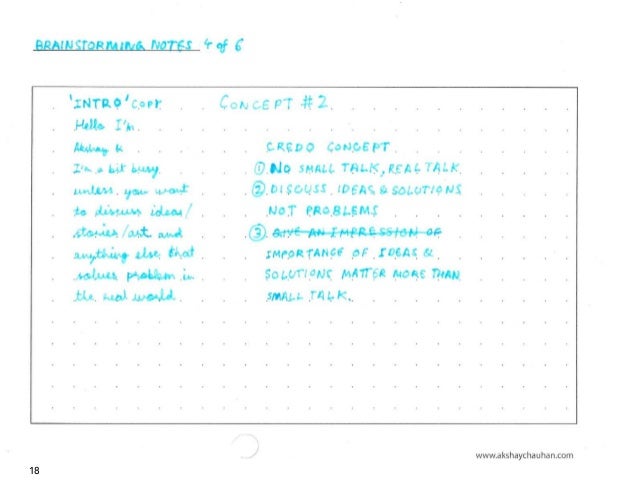 BRAINSTORMING NOTES 4 of 6
'INTRO' COPY.
Hello I'm.
Akshay K
I'm a bit busy.
unless, you want
to discuss ideas/
stories/art and
anything else, that
solves problem in
the real world.
CONCEPT #2.
CREDO CONCEPT.
① NO SMALL TALK, REAL TALK.
② DISCUSS IDEAS & SOLUTIONS
NOT PROBLEMS
③ GIVE AN IMPRESSION OF
IMPORTANCE OF IDEAS &
SOLUTIONS MATTER MORE THAN
SMALL TALK.
www.akshaychauhan.com
18